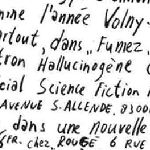 mine l'année Volny-
artout, dans "Fumez
tron Hallucinogène
cial Science Fiction
AVENUE S. ALLENDE, 8300
dans une nouvelle
FR. chez ROUGE 6 RUE